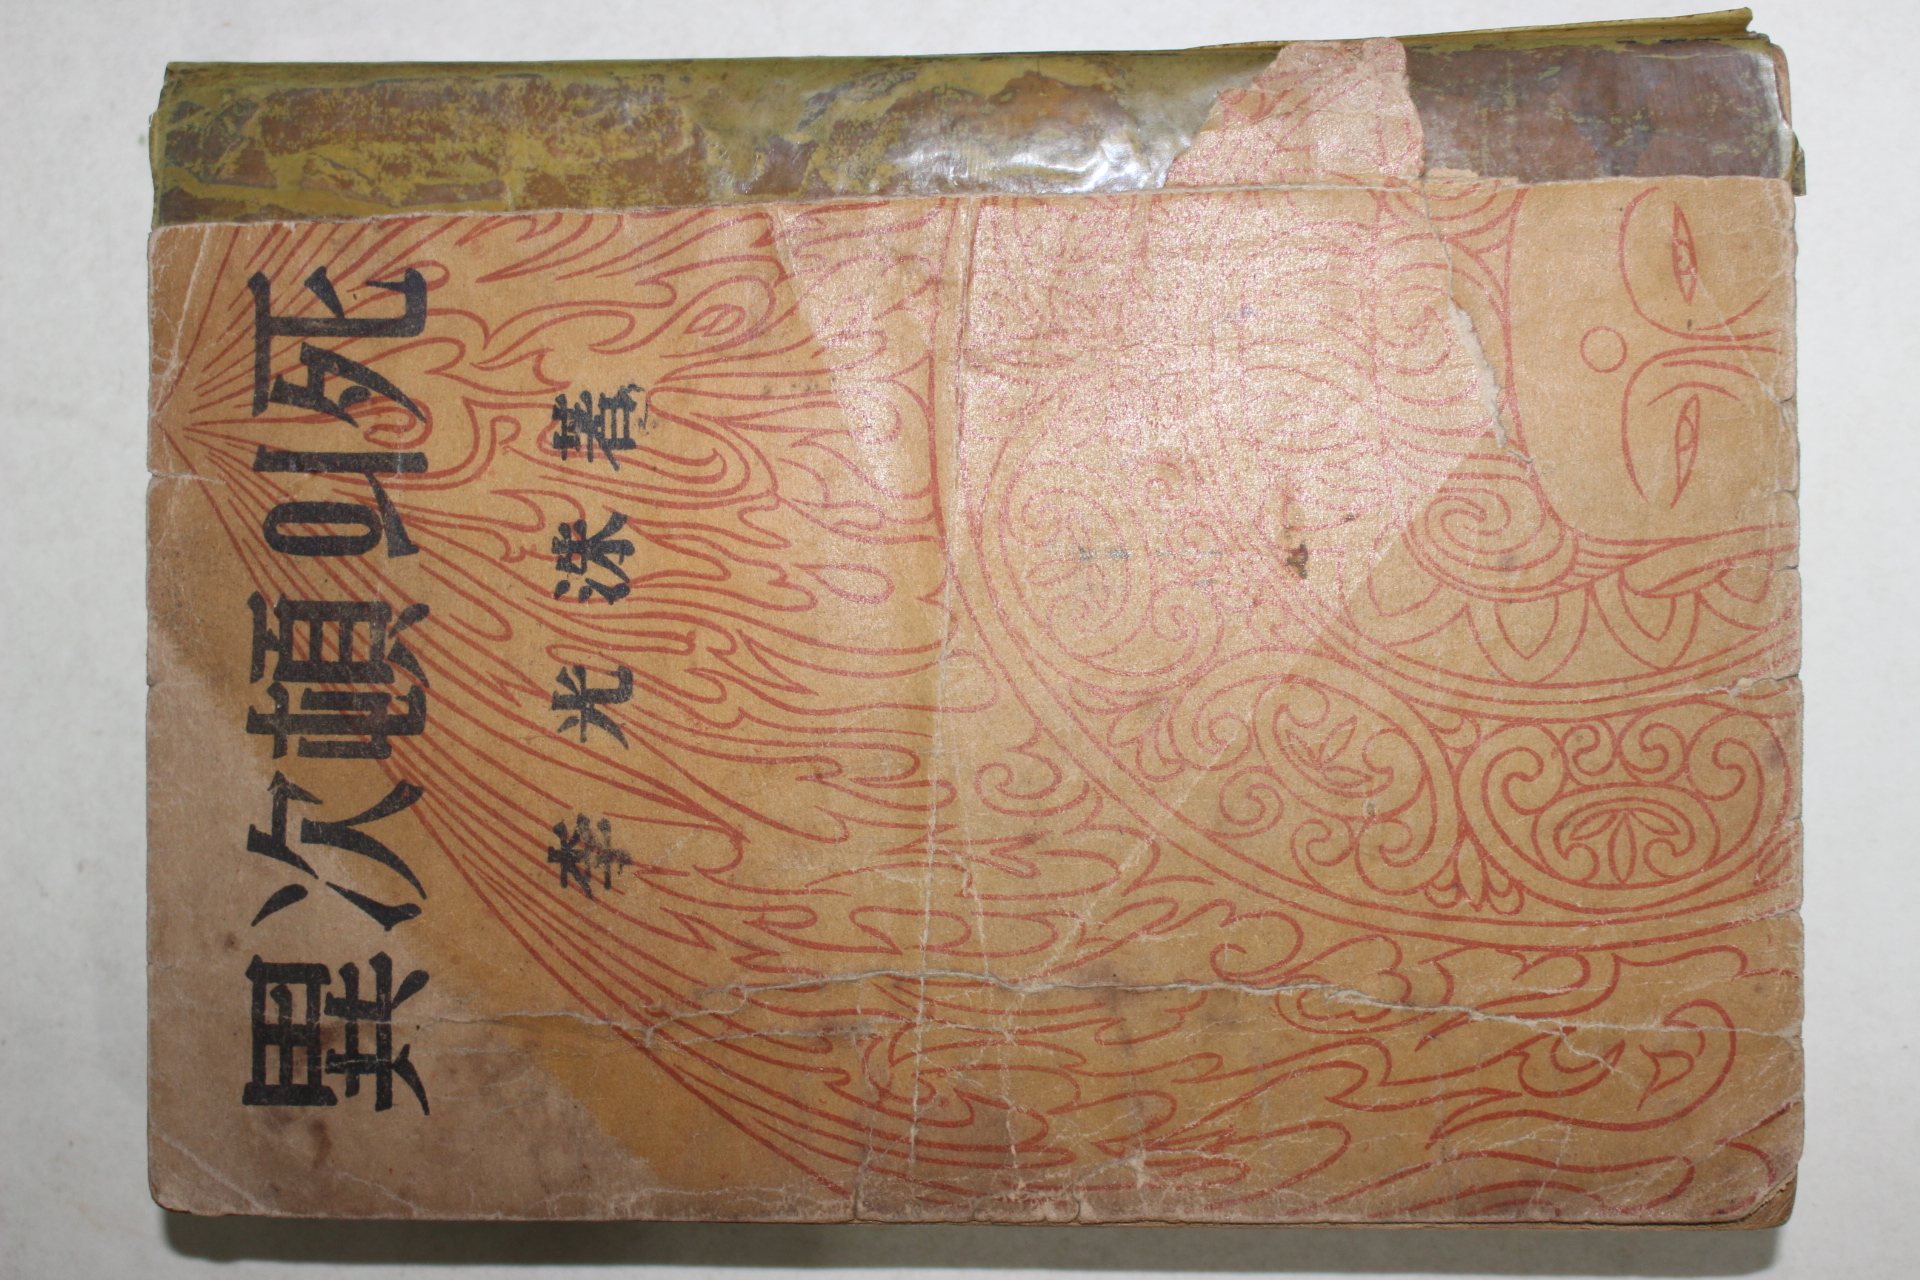 異次頓의死
李光洙著